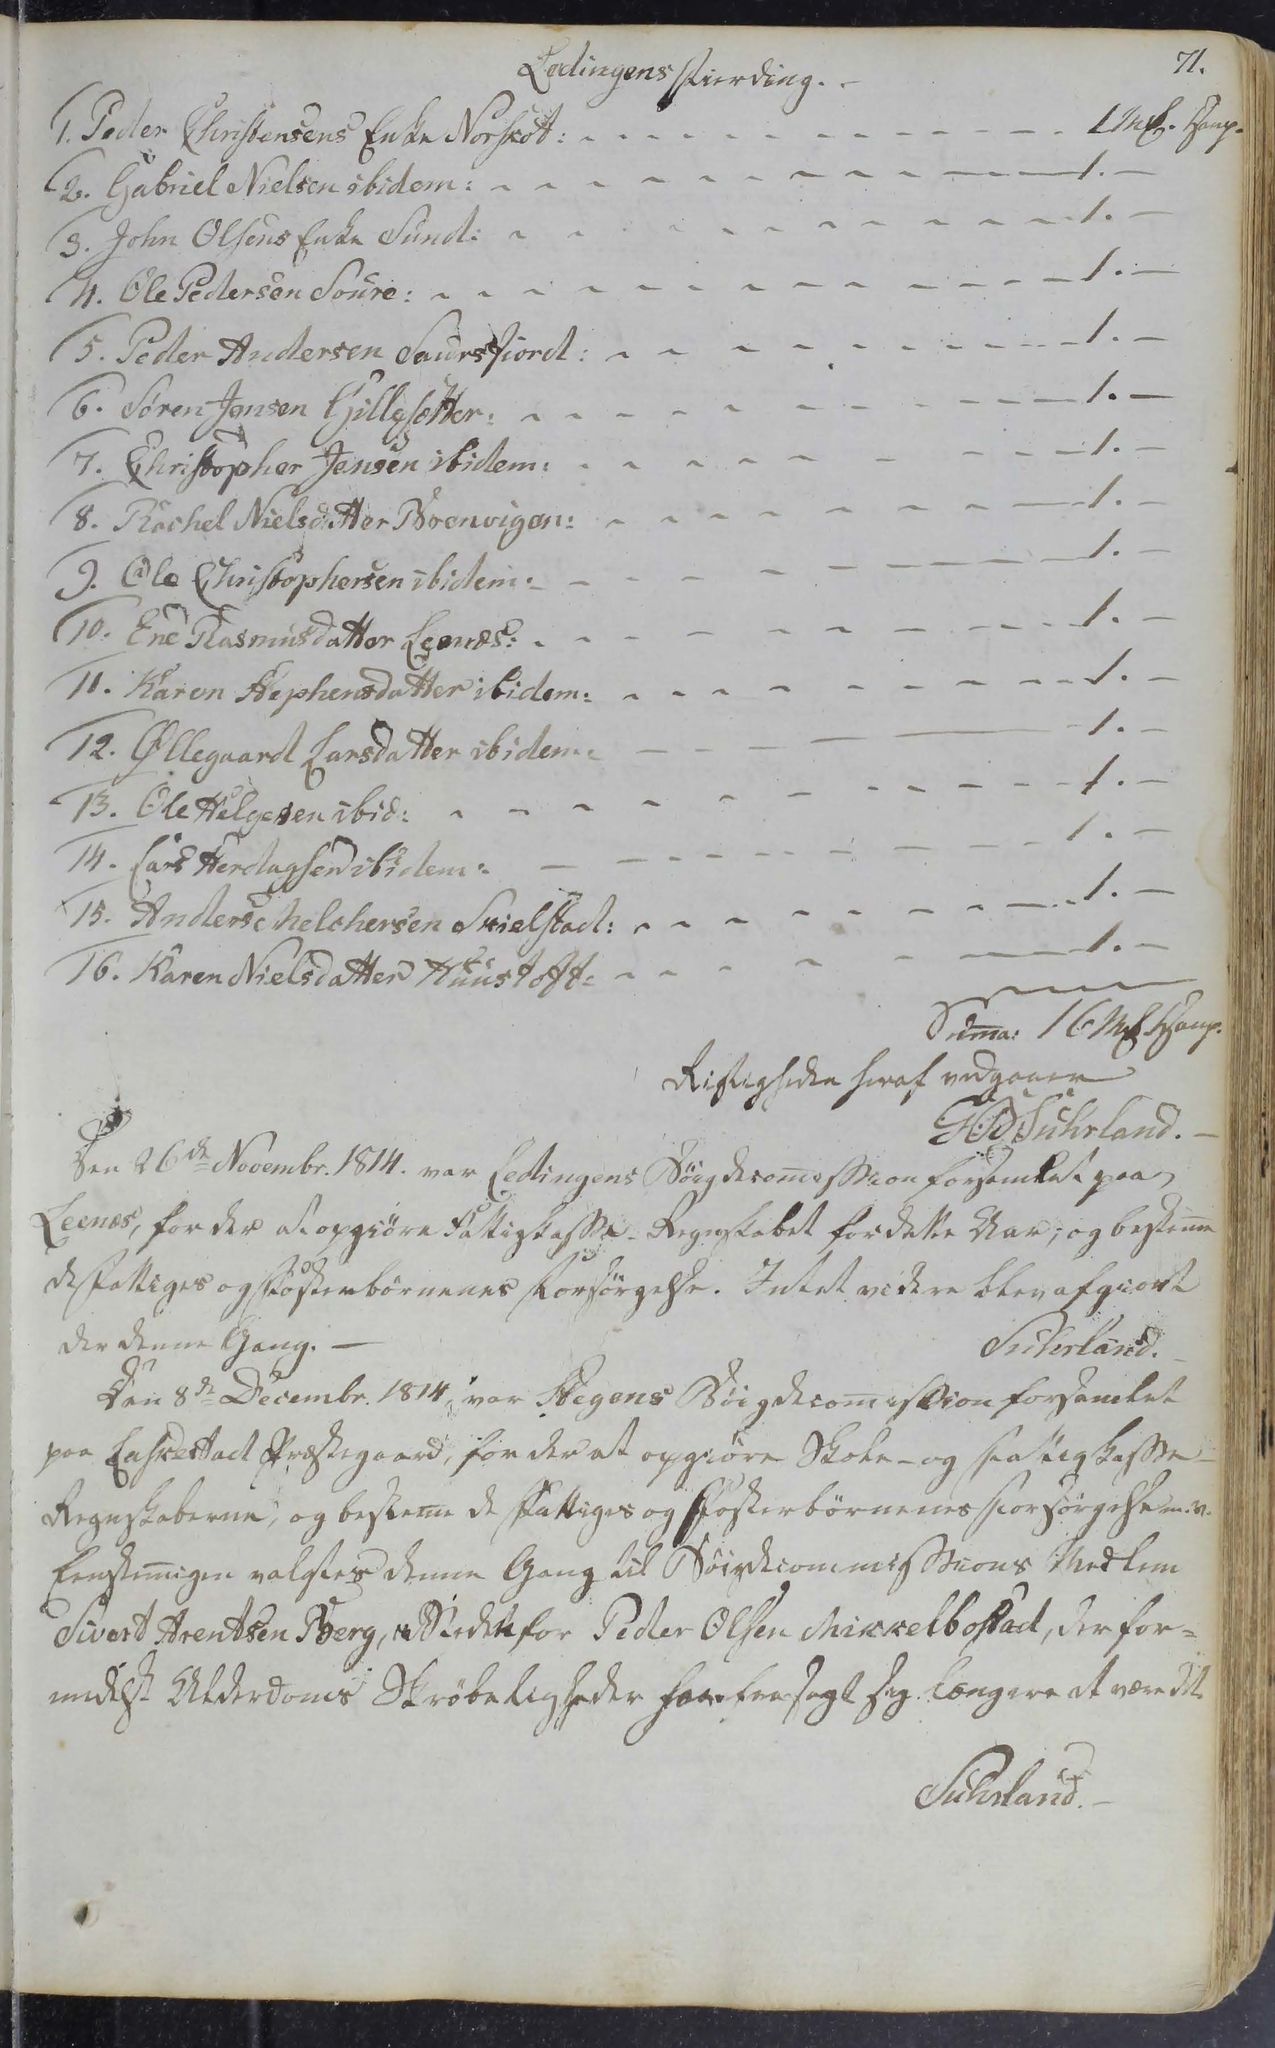 71.
Ledingens Fierding. -
1. Peder Christensens Enke Norskot: 1 Mk. Hamp.
2. Gabriel Nielsen ibidem: 1. -
3. John Olsens Enke Sund: 1. -
4. Ole Pedersen Soure: 1. -
5. Peder Andersen Saursfiord: 1. -
6. Søren Jensen Gillesetter: 1. -
7. Christopher Jensen ibidem: 1. -
8. Rachel Nielsdatter Boenvigen: 1. -
9. Ole Christophersen ibidem: 1. -
10. Ene Rasmusdatter Leenæs: 1. -
11. Karen Stephensdatter ibidem: 1. -
12. Øllegaard Larsdatter ibidem: 1. -
13. Ole Helgesen ibid: 1. -
14. Lars Herdagsen ibidem: 1. -
15. Anders Melchersen Skielstad: 1. -
16. Karen Nielsdatter Huustoft: 1. -
Suma: 16 Mk Hamp.
Rigtigheden heraf vedgaaer
Suhrland. -
Den 26de Novembr. 1814. var Ledingens Bøigdecomission forsamlet paa
Leenæs, for der at opgiøre Fattigkasse-Regnskabet for dette Aar; og bestemme
de Fattiges og Fosterbørnenes Forsørgelse. Intet videre blev afgiort
der denne Gang. -
Suhrland. -
Den 8de Decembr. 1814, var Stegens Bøigdecomission forsamlet
paa Laskestad Præstegaard, for der at opgiøre Skole- og Fattigkasse-
Regnskaberne, og besteme de Fattiges og Fosterbørnenes Forsørgelse m. v.
Eenstemigen valgtes denne Gang til Bøigdecommissions Medlem
Sivert Arentsen Berg, i Stedet for Peder Olsen Mikkelbostad, der for-
medelst Alderdoms Skrøbeligheder har frasagt sig længere at være det.
Suhrland. -